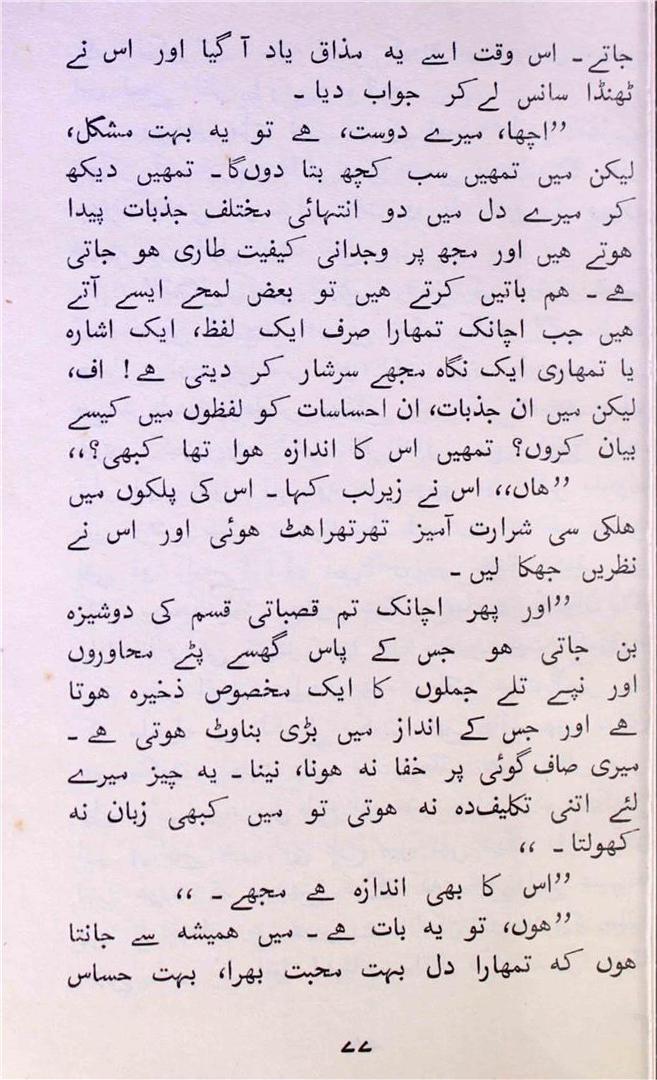 جاتے۔ اس وقت اسے یہ مذاق یاد آ گیا اور اس نے
ٹھنڈا سانس لے کر جواب دیا ۔
”اچھا، میرے دوست، ھے تو یہ بہت مشکل،
لیکن میں تمھیں سب کچھ بتا دوں‌گا۔ تمھیں دیکھ
کر میرے دل میں دو انتہائی مختلف جذبات پیدا
ھوتے ھیں اور مجھ پر وجدانی کیفیت طاری ھو جاتی
ھے۔ ھم باتیں کرتے ھیں تو بعض لمحے ایسے آتے
ھیں جب اچانک تمھارا صرف ایک لفظ، ایک اشارہ
یا تمھاری ایک نگاہ مجھے سرشار کر دیتی ھے! اف،
لیکن میں ان جذبات، ان احساسات کو لفظوں میں کیسے
بیان کروں؟ تمھیں اس کا اندازہ ھوا تھا کبھی؟،،
”ھاں،، اس نے زیرلب کہا۔ اس کی پلکوں میں
ھلکی سی شرارت آمیز تھرتھراھٹ ھوئی اور اس نے
نظریں جھکا لیں۔
”اور پھر اچانک تم قصباتی قسم کی دوشیزہ
بن جاتی ھو جس کے پاس گھسے پٹے محاوروں
اور نپے تلے جملوں کا ایک مخصوص ذخیرہ ھوتا
ھے اور جس کے انداز میں بڑی بناوٹ ھوتی ھے۔
میری صاف‌گوئی پر خفا نہ ھونا، نینا۔ یہ چیز میرے
لئے اتنی تکلیف‌دہ نہ ھوتی تو میں کبھی زبان نہ
کھولتا۔،،
”اس کا بھی اندازہ ھے مجھے۔،،
”ھوں، تو یہ بات ھے۔ میں ھمیشہ سے جانتا
ھوں کہ تمھارا دل بہت محبت بھرا، بہت حساس
۷۷